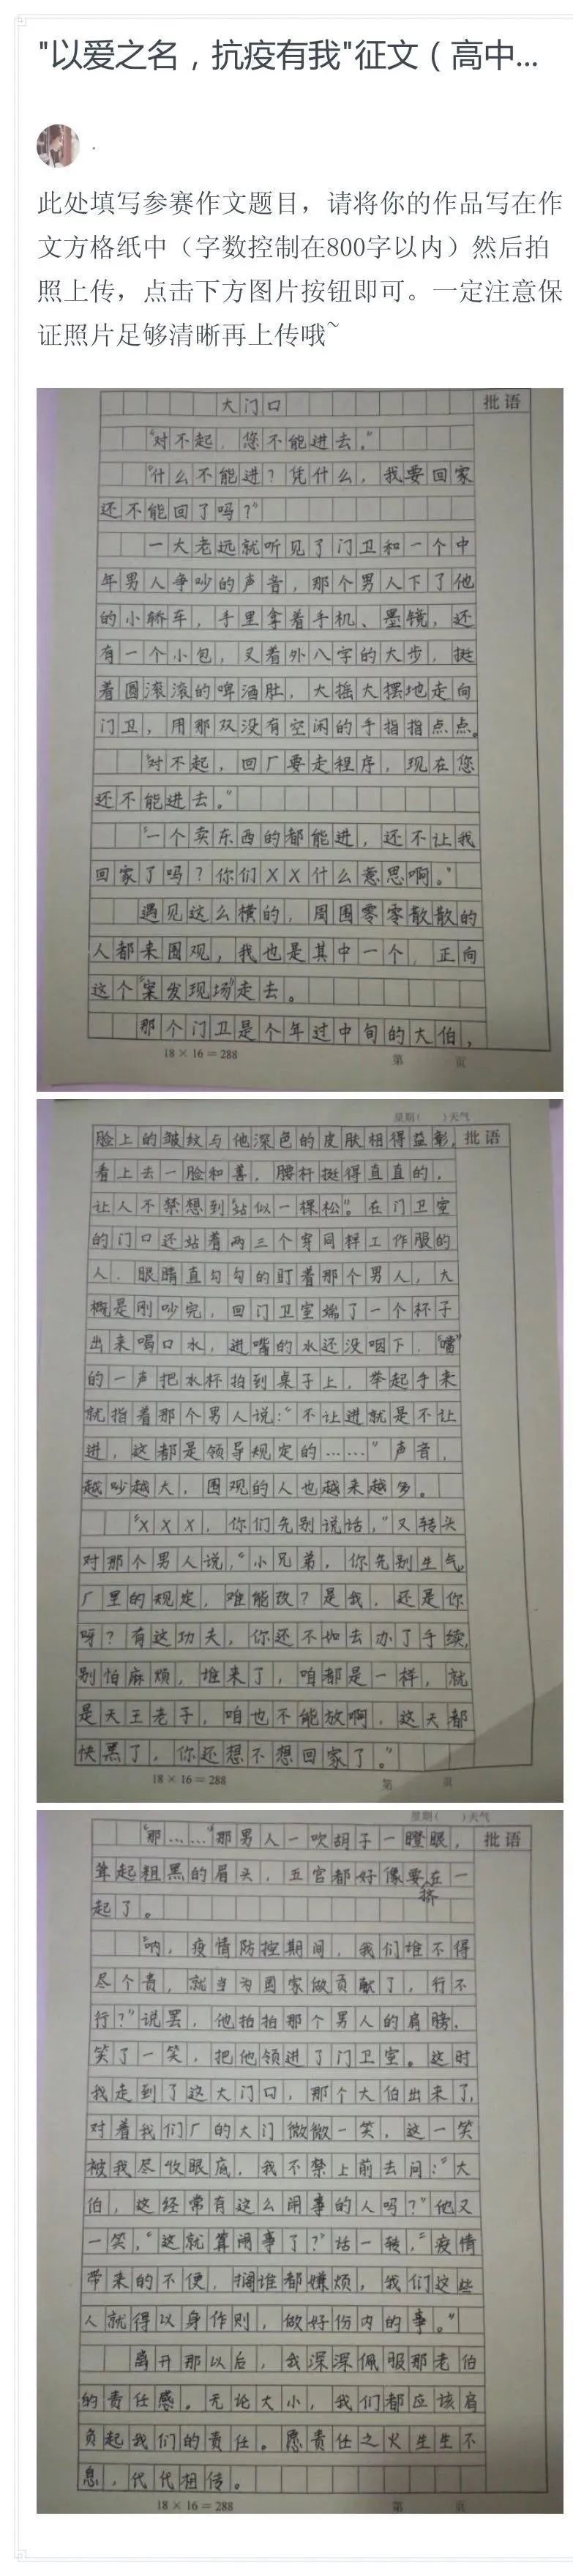 "以爱之名，抗疫有我"征文（高中...
.
此处填写参赛作文题目，请将你的作品写在作
文方格纸中（字数控制在800字以内）然后拍
照上传，点击下方图片按钮即可。一定注意保
证照片足够清晰再上传哦~
大门口
批语
"对不起，您不能进去。"
"什么不能进？凭什么，我要回家
还不能回了吗？"
一大老远就听见了门卫和一个中
年男人争吵的声音，那个男人下了他
的小轿车，手里拿着手机、墨镜，还
有一个小包，又着外八字的大步，挺
着圆滚滚的啤酒肚，大摇大摆地走向
门卫，用那双没有空闲的手指指点点。
"对不起，回厂要走程序，现在您
还不能进去。"
"一个卖东西的都能进，还不让我
回家了吗？你们XX什么意思啊。"
遇见这么横的，周围零零散散的
人都来围观，我也是其中一个，正向
这个"案发现场"走去。
那个门卫是个年过中旬的大伯，
18×16=288
第 页
星期( )天气
脸上的皱纹与他深色的皮肤相得益彰，
批语
看上去一脸和善，腰杆挺得直直的，
让人不禁想到"站似一棵松"。在门卫室
的门口还站着两三个穿同样工作服的
人，眼睛直勾勾的盯着那个男人，大
概是刚吵完，回门卫室端了一个杯子
出来喝口水，进嘴的水还没咽下，"噹"
的一声把水杯拍到桌子上，举起手来
就指着那个男人说："不让进就是不让
进，这都是领导规定的……"声音，
越吵越大，围观的人也越来越多。
"XXX，你们先别说话，"又转头
对那个男人说，"小兄弟，你先别生气，
厂里的规定，难能改？是我，还是你
呀？有这功夫，你还不如去办了手续，
别怕麻烦，谁来了，咱都是一样，就
是天王老子，咱也不能放啊，这天都
快黑了，你还想不想回家了。"
18×16=288
第 页
星期( )天气
"那……"那男人一吹胡子一瞪眼，
批语
耸起粗黑的眉头，五官都好像要挤在一
起了。
"呐，疫情防控期间，我们谁不得
尽个责，就当为国家做贡献了，行不
行？"说罢，他拍拍那个男人的肩膀，
笑了一笑，把他领进了门卫室。这时
我走到了这大门口，那个大伯出来了，
对着我们厂的大门微微一笑，这一笑
被我尽收眼底，我不禁上前去问："大
伯，这经常有这么闹事的人吗？"他又
一笑，"这就算闹事了？"话一转，"疫情
带来的不便，搁谁都嫌烦，我们这些
人就得以身作则，做好份内的事。"
离开那以后，我深深佩服那老伯
的责任感。无论大小，我们都应该肩
负起我们的责任。愿责任之火生生不
息，代代相传。
18×16=288
第 页